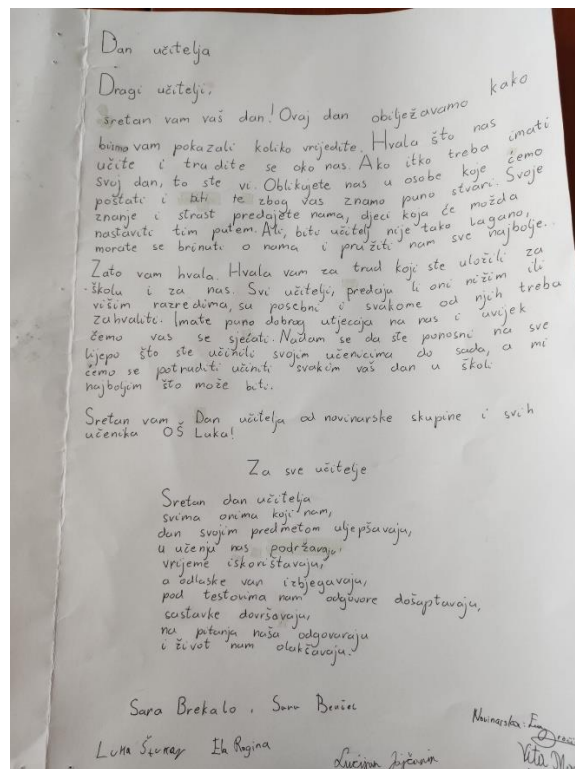 Dan učitelja
Dragi učitelji,
sretan vam vaš dan! Ovaj dan obilježavamo kako
bismo vam pokazali koliko vrijedite. Hvala što nas
učite i trudite se oko nas. Ako itko treba imati
svoj dan, to ste vi. Oblikujete nas u osobe koje ćemo
postati i biti te zbog vas znamo puno stvari. Svoje
znanje i strast predajete nama, djeci koja će možda
nastaviti tim putem. Ali, biti učitelj nije tako lagano,
morate se brinuti o nama i pružiti nam sve najbolje.
Zato vam hvala. Hvala vam za trud koji ste uložili za
školu i za nas. Svi učitelji, predaju li oni nižim ili
višim razredima, su posebni i svakome od njih treba
zahvaliti. Imate puno dobrog utjecaja na nas i uvijek
ćemo vas se sjećati. Nadam se da ste ponosni na sve
lijepo što ste učinili svojim učenicima do sada, a mi
ćemo se potruditi učiniti svakim vaš dan u školi
najboljim što može biti.
Sretan vam Dan učitelja od novinarske skupine i svih
učenika OŠ Luka!
Za sve učitelje
Sretan dan učitelja
svima onima koji nam,
dan svojim predmetom uljepšavaju,
u učenju nas podržavaju,
vrijeme iskorištavaju,
a odlaske van izbjegavaju,
pod testovima nam odgovore došaptavaju,
sastavke dovršavaju,
na pitanja naša odgovaraju
i život nam olakčavaju.
Sara Brekalo, Sara
Novinarska:
Luka Ela Rogina
Lucijan
Vita